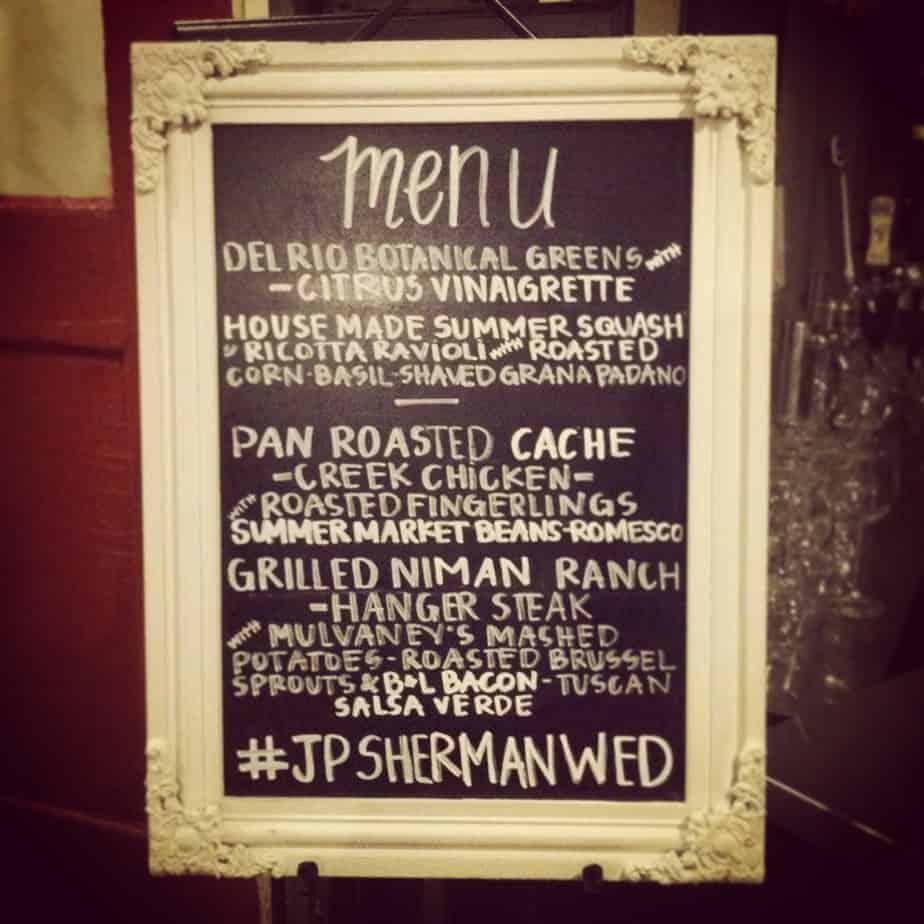 menu
DEL RIO BOTANICAL GREENS WITH
-CITRUS VINAIGRETTE
HOUSE MADE SUMMER SQUASH
& RICOTTA RAVIOLI WITH ROASTED
CORN-BASIL-SHAVED GRANA PADANO
PAN ROASTED CACHE
-CREEK CHICKEN-
WITH ROASTED FINGERLINGS
SUMMER MARKET BEANS-ROMESCO
GRILLED NIMAN RANCH
-HANGER STEAK
WITH MULVANEY'S MASHED
POTATOES-ROASTED BRUSSEL
SPROUTS & B&L BACON-TUSCAN
SALSA VERDE
#JPSHERMANWED